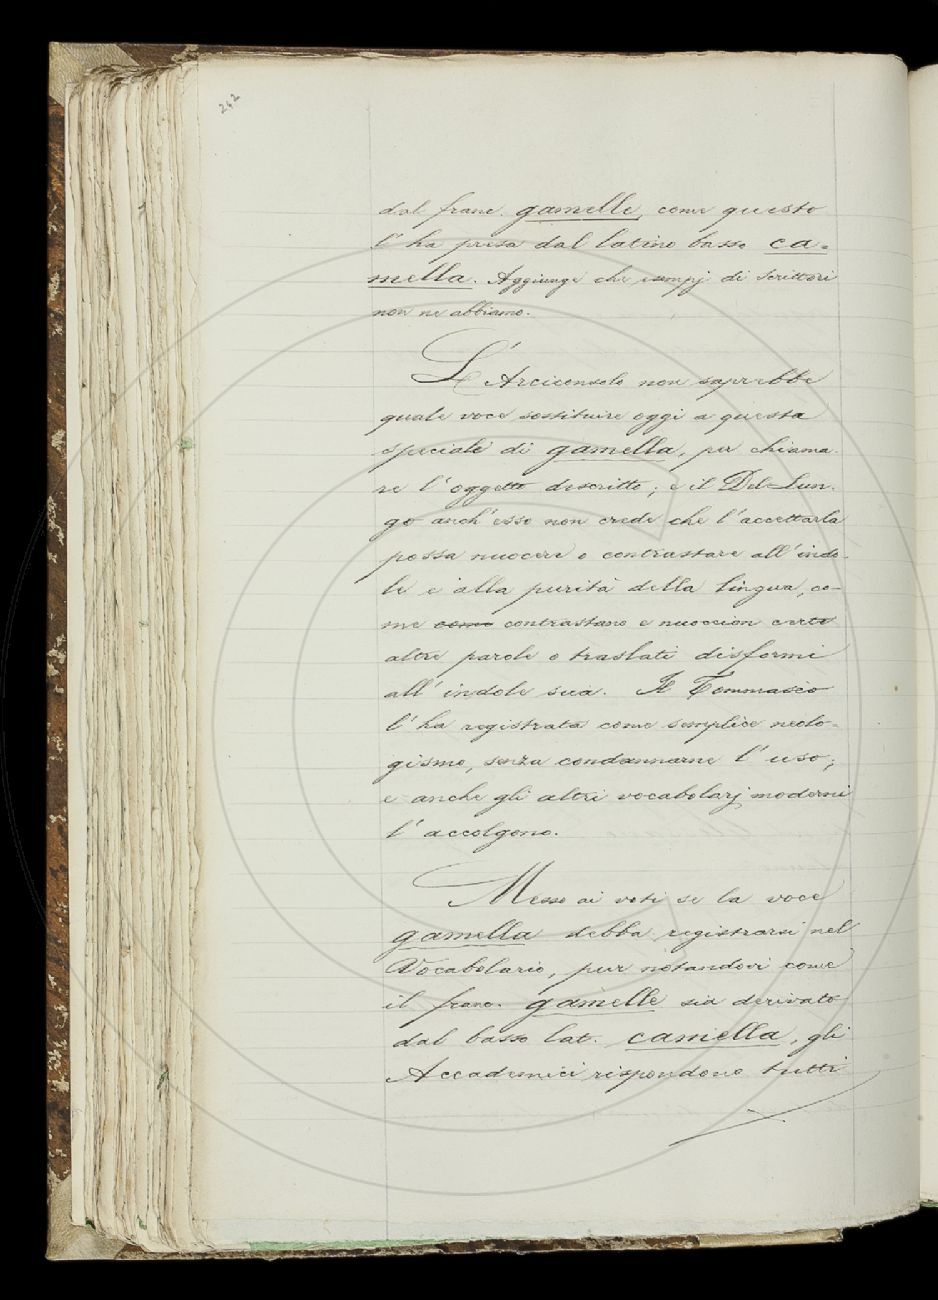 242
dal franc. gamelle, come questo
l'ha presa dal latino basso ca-
mella. Aggiunge che esempj di scrittori
non ne abbiamo.
L'Arciconsolo non saprebbe
quale voce sostituire oggi a questa
speciale di gamella, per chiama-
re l'oggetto descritto; e il Del-Lun-
go anch'esso non crede che l'accettarla
possa nuocere o contrastare all'indo-
le e alla purità della lingua, co-
me come contrastano e nuoccion certe
altre parole o traslati disformi
all'indole sua. Il Tommasèo
l'ha registrata come semplice neolo-
gismo, senza condannarne l'uso;
e anche gli altri vocabolarj moderni
l'accolgono.
Messo ai voti se la voce
gamella debba registrarsi nel
Vocabolario, pur notandovi come
il franc. gamelle sia derivato
dal basso lat. camella, gli
Accademici rispondono tutti